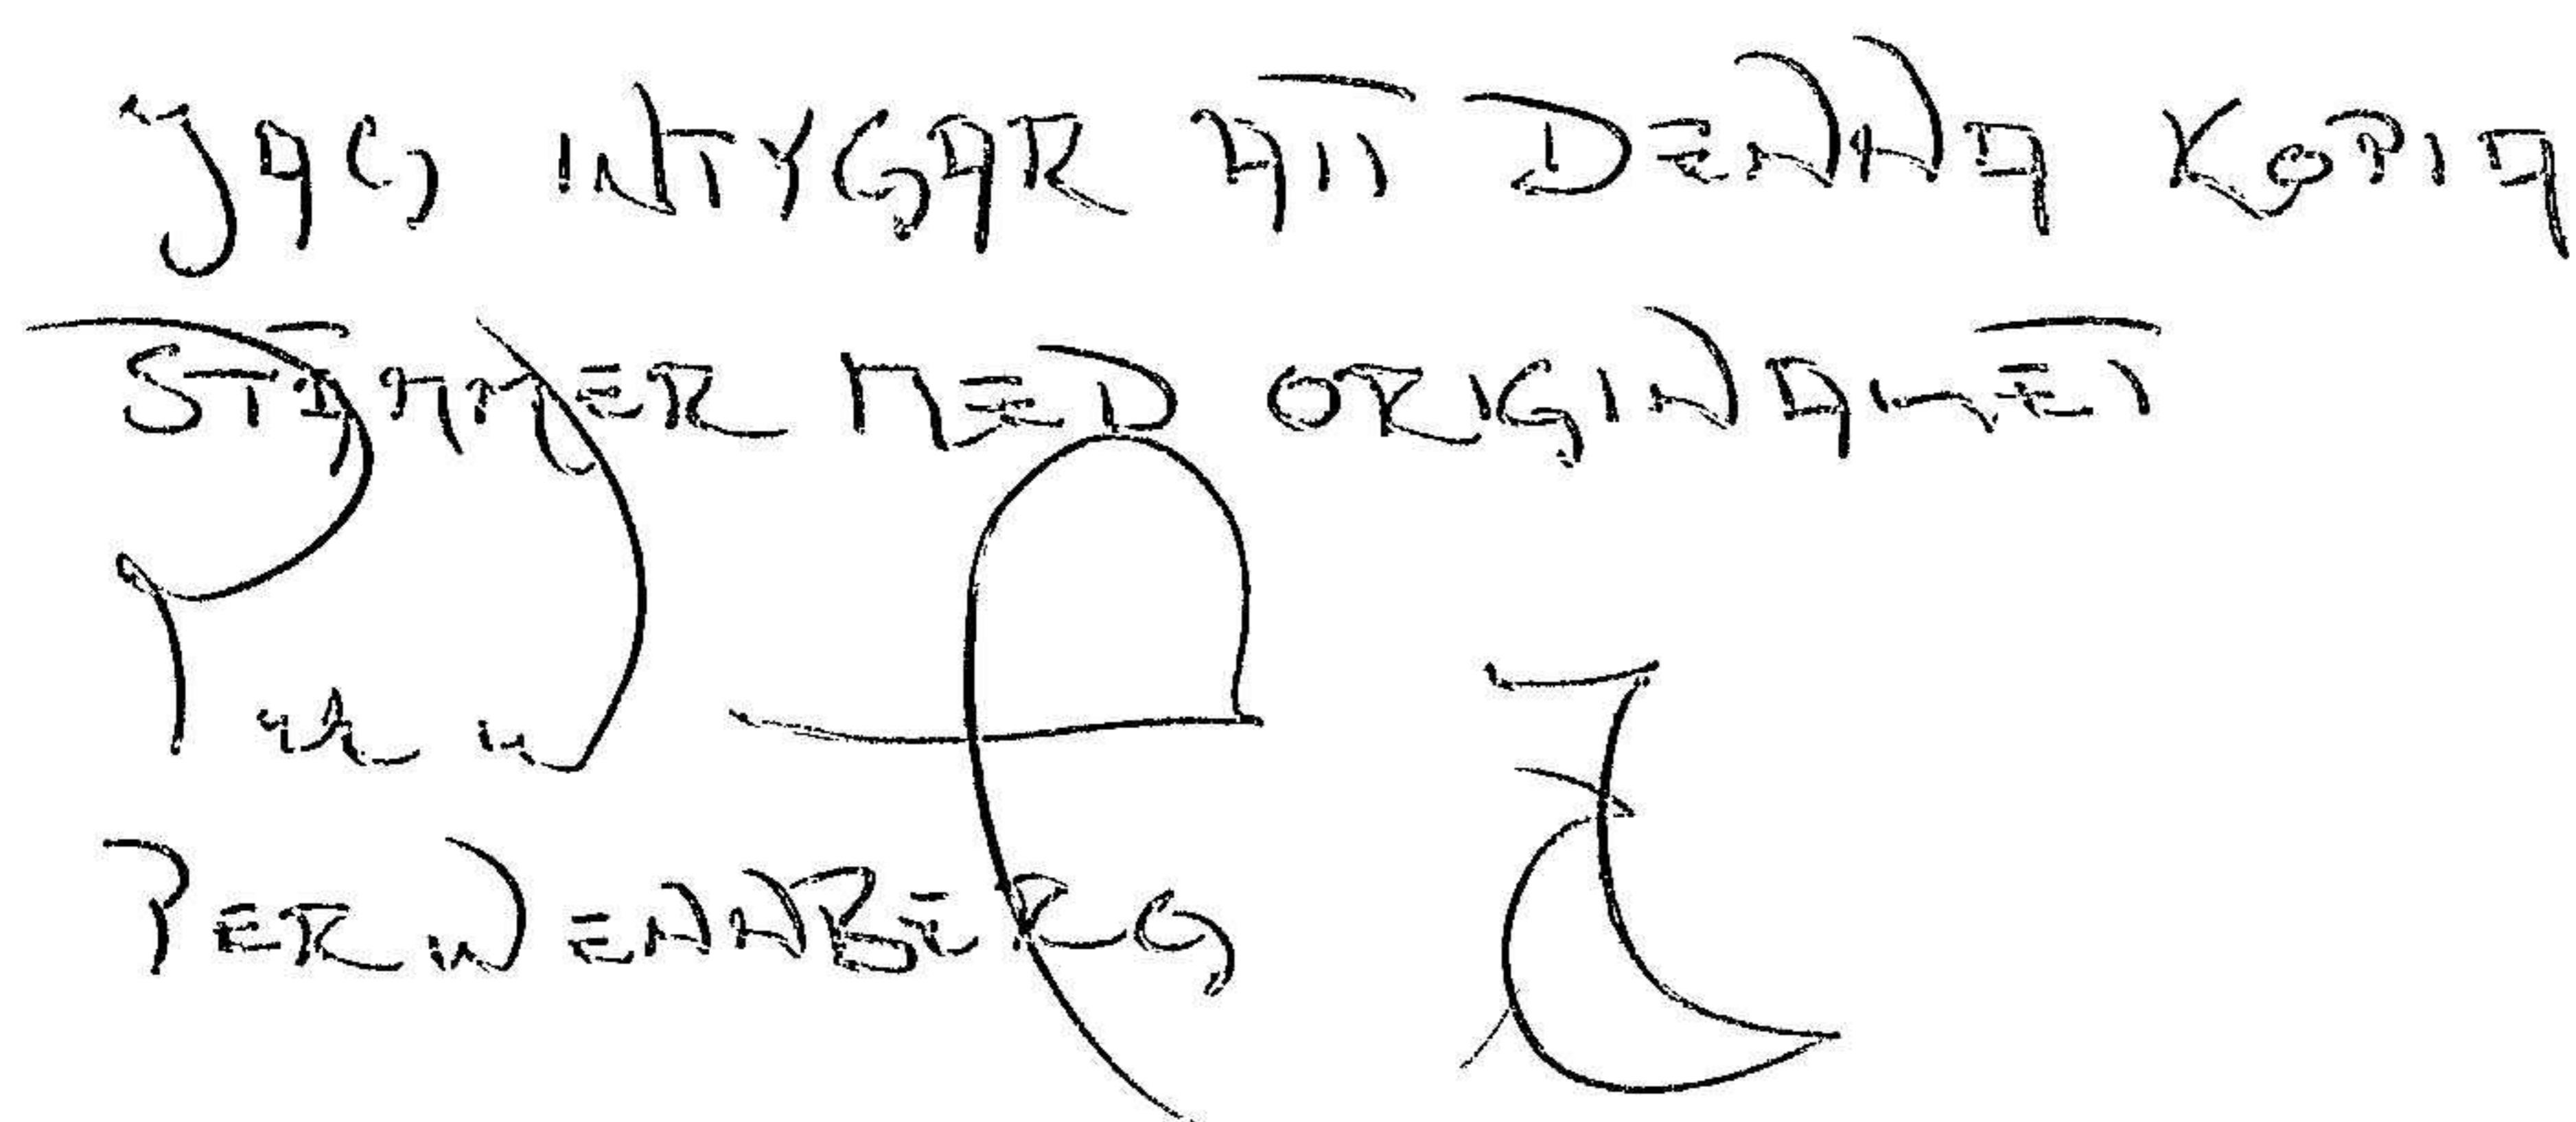 JAG INTYGAR ATT DENNA KOPIA
STÄMMER MED ORIGINALET
PER WENNBERG